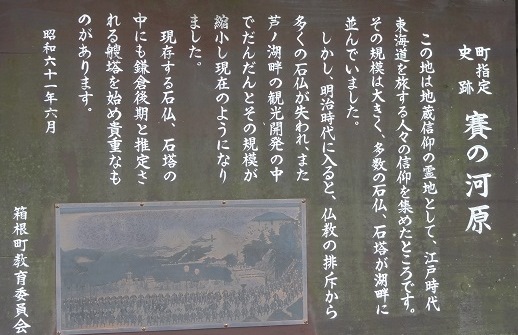 町指定
史跡
賽の河原
この地は地蔵信仰の霊地として、江戸時代
東海道を旅する人々の信仰を集めたところです。
その規模は大きく、多数の石仏、石塔が湖畔に
並んでいました。
しかし、明治時代に入ると、仏教の排斥から
多くの石仏が失われ、また
芦ノ湖畔の観光開発の中
でだんだんとその規模が
縮小し現在のようになり
ました。
現存する石仏、石塔の
中にも鎌倉後期と推定さ
れる艘塔を始め貴重なも
のがあります。
昭和六十一年六月
箱根町教育委員会